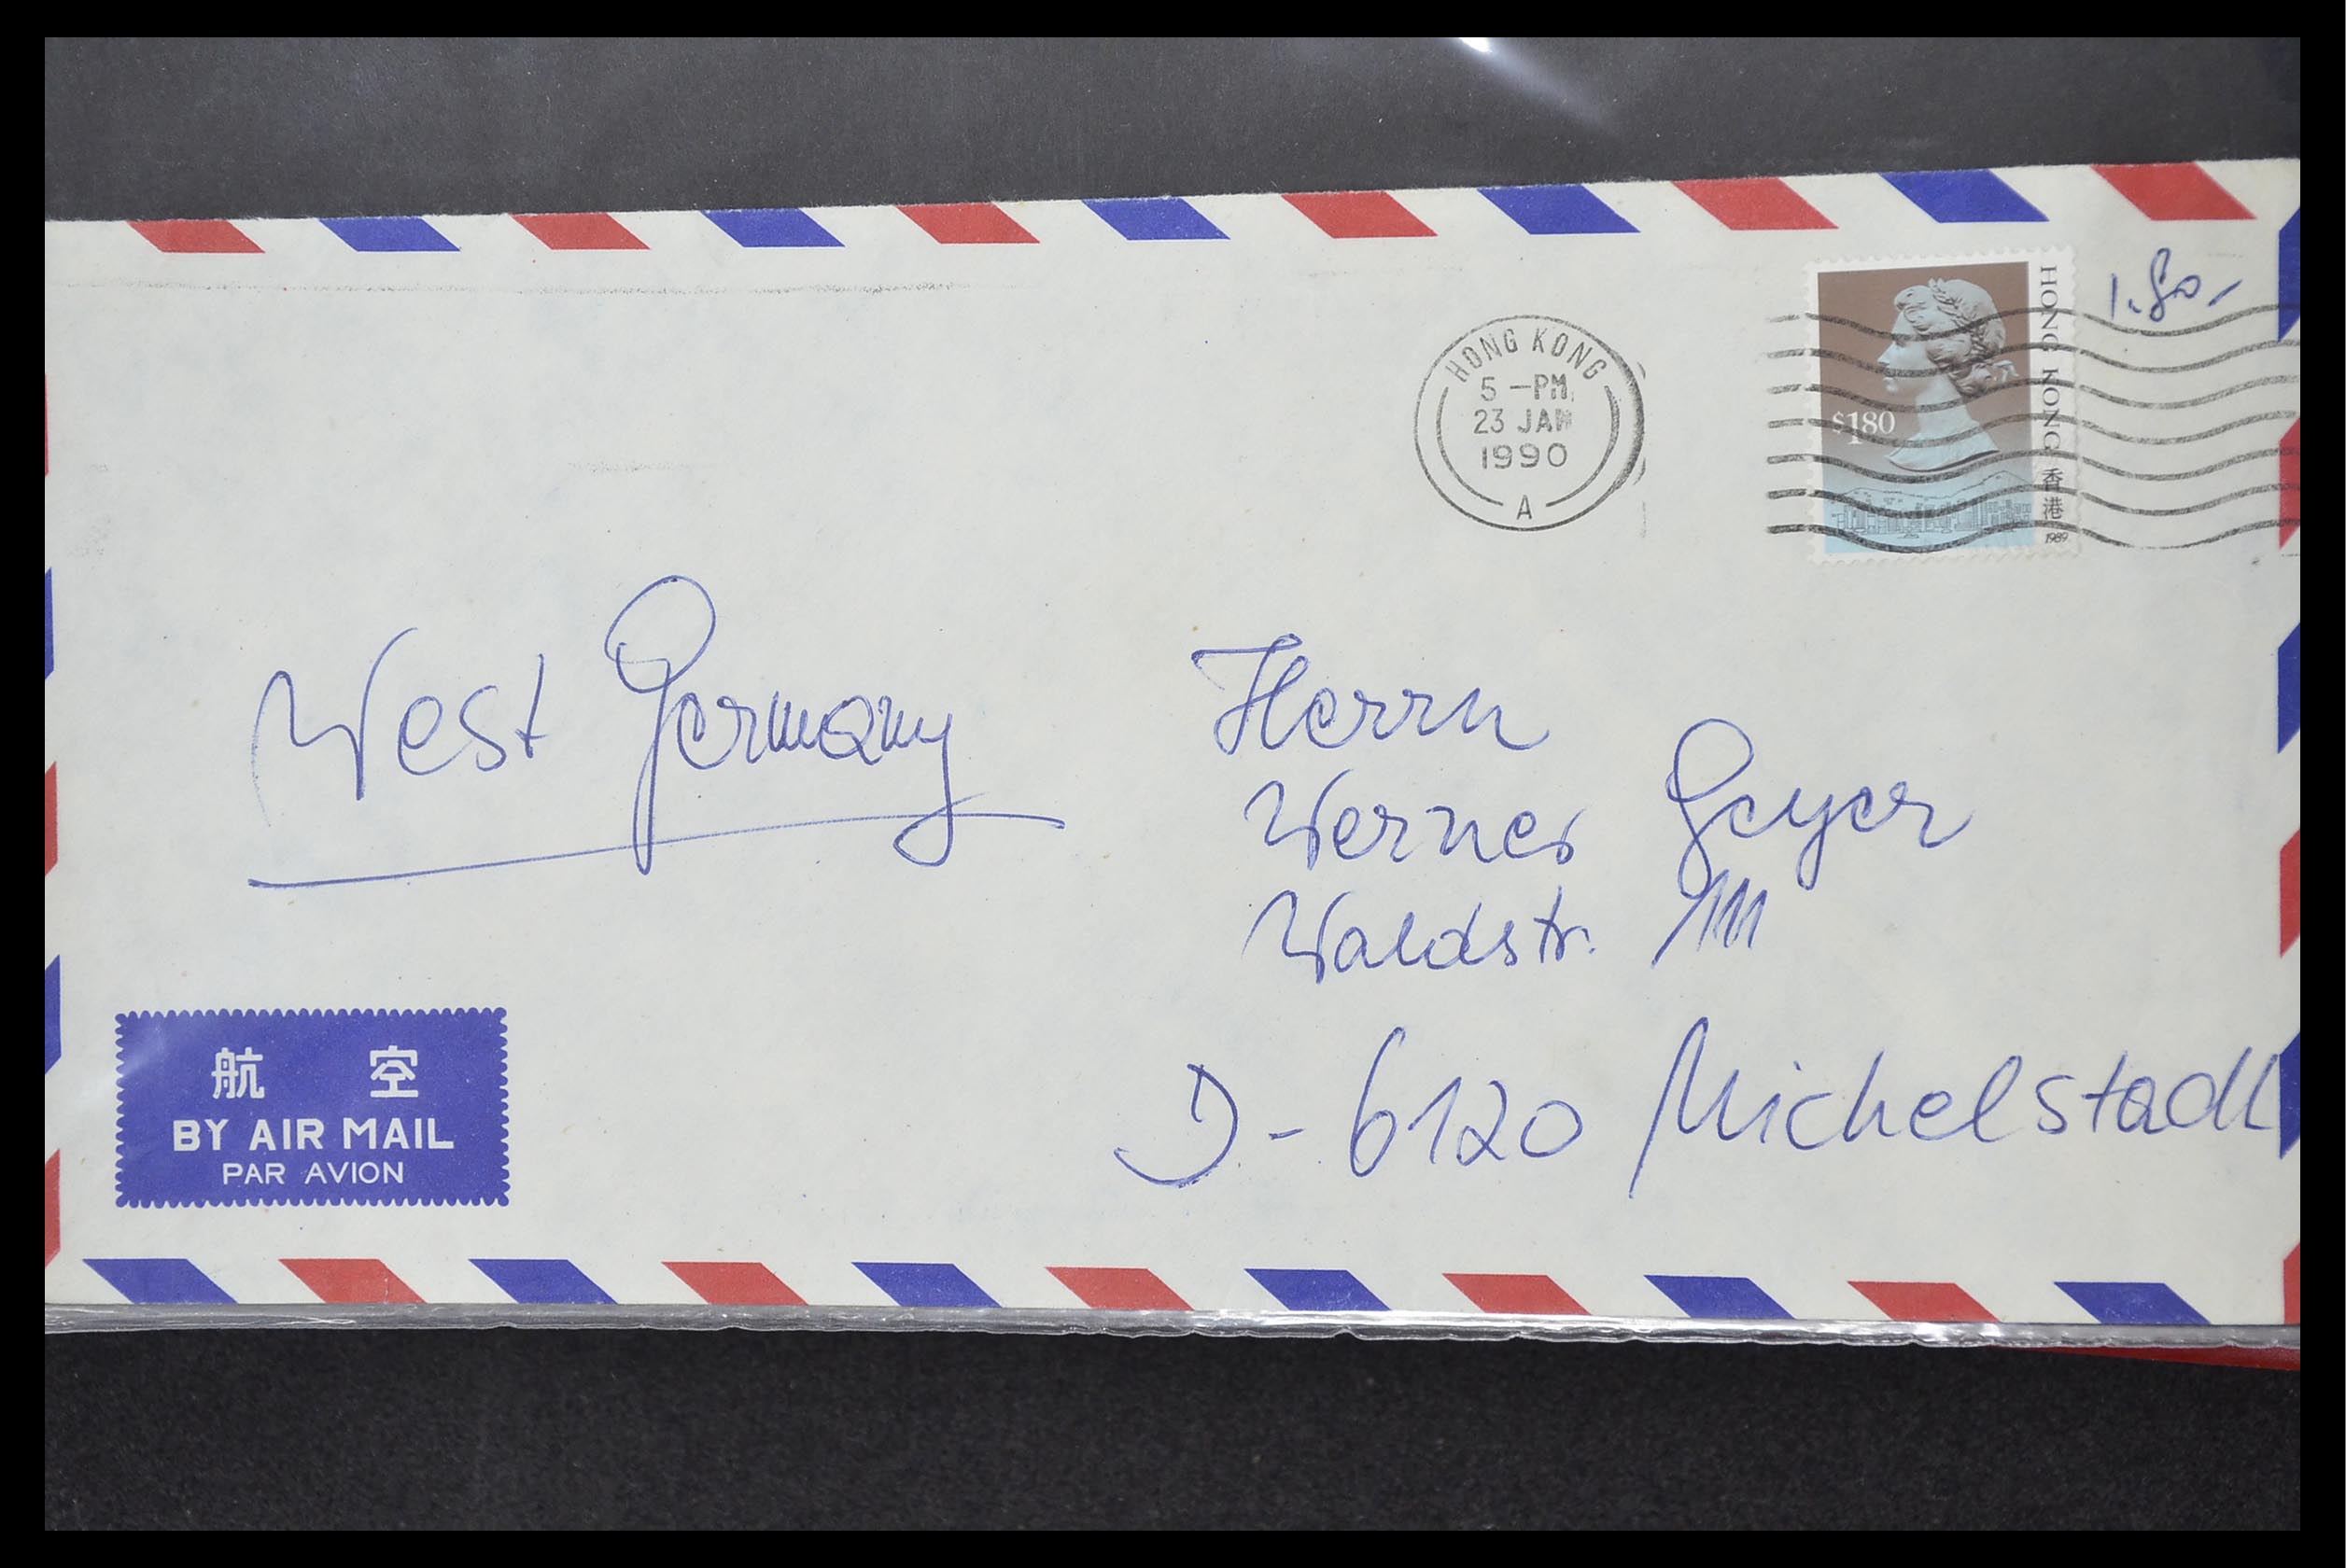 1.80,-
HONG KONG
5 -PM
23 JAN
1990
A
$1.80
HONG KONG 香港
1989
West Germany
Herrn
Werner Geyer
Waldstr.
D-6120 Michelstadt
航 空
BY AIR MAIL
PAR AVION